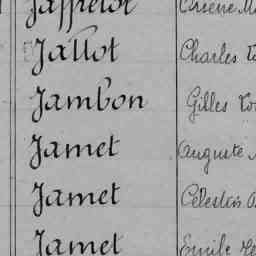 Jaffrelot
Jallot Charles
Jambon Gilles
Jamet Auguste
Jamet Célestin
Jamet Emile